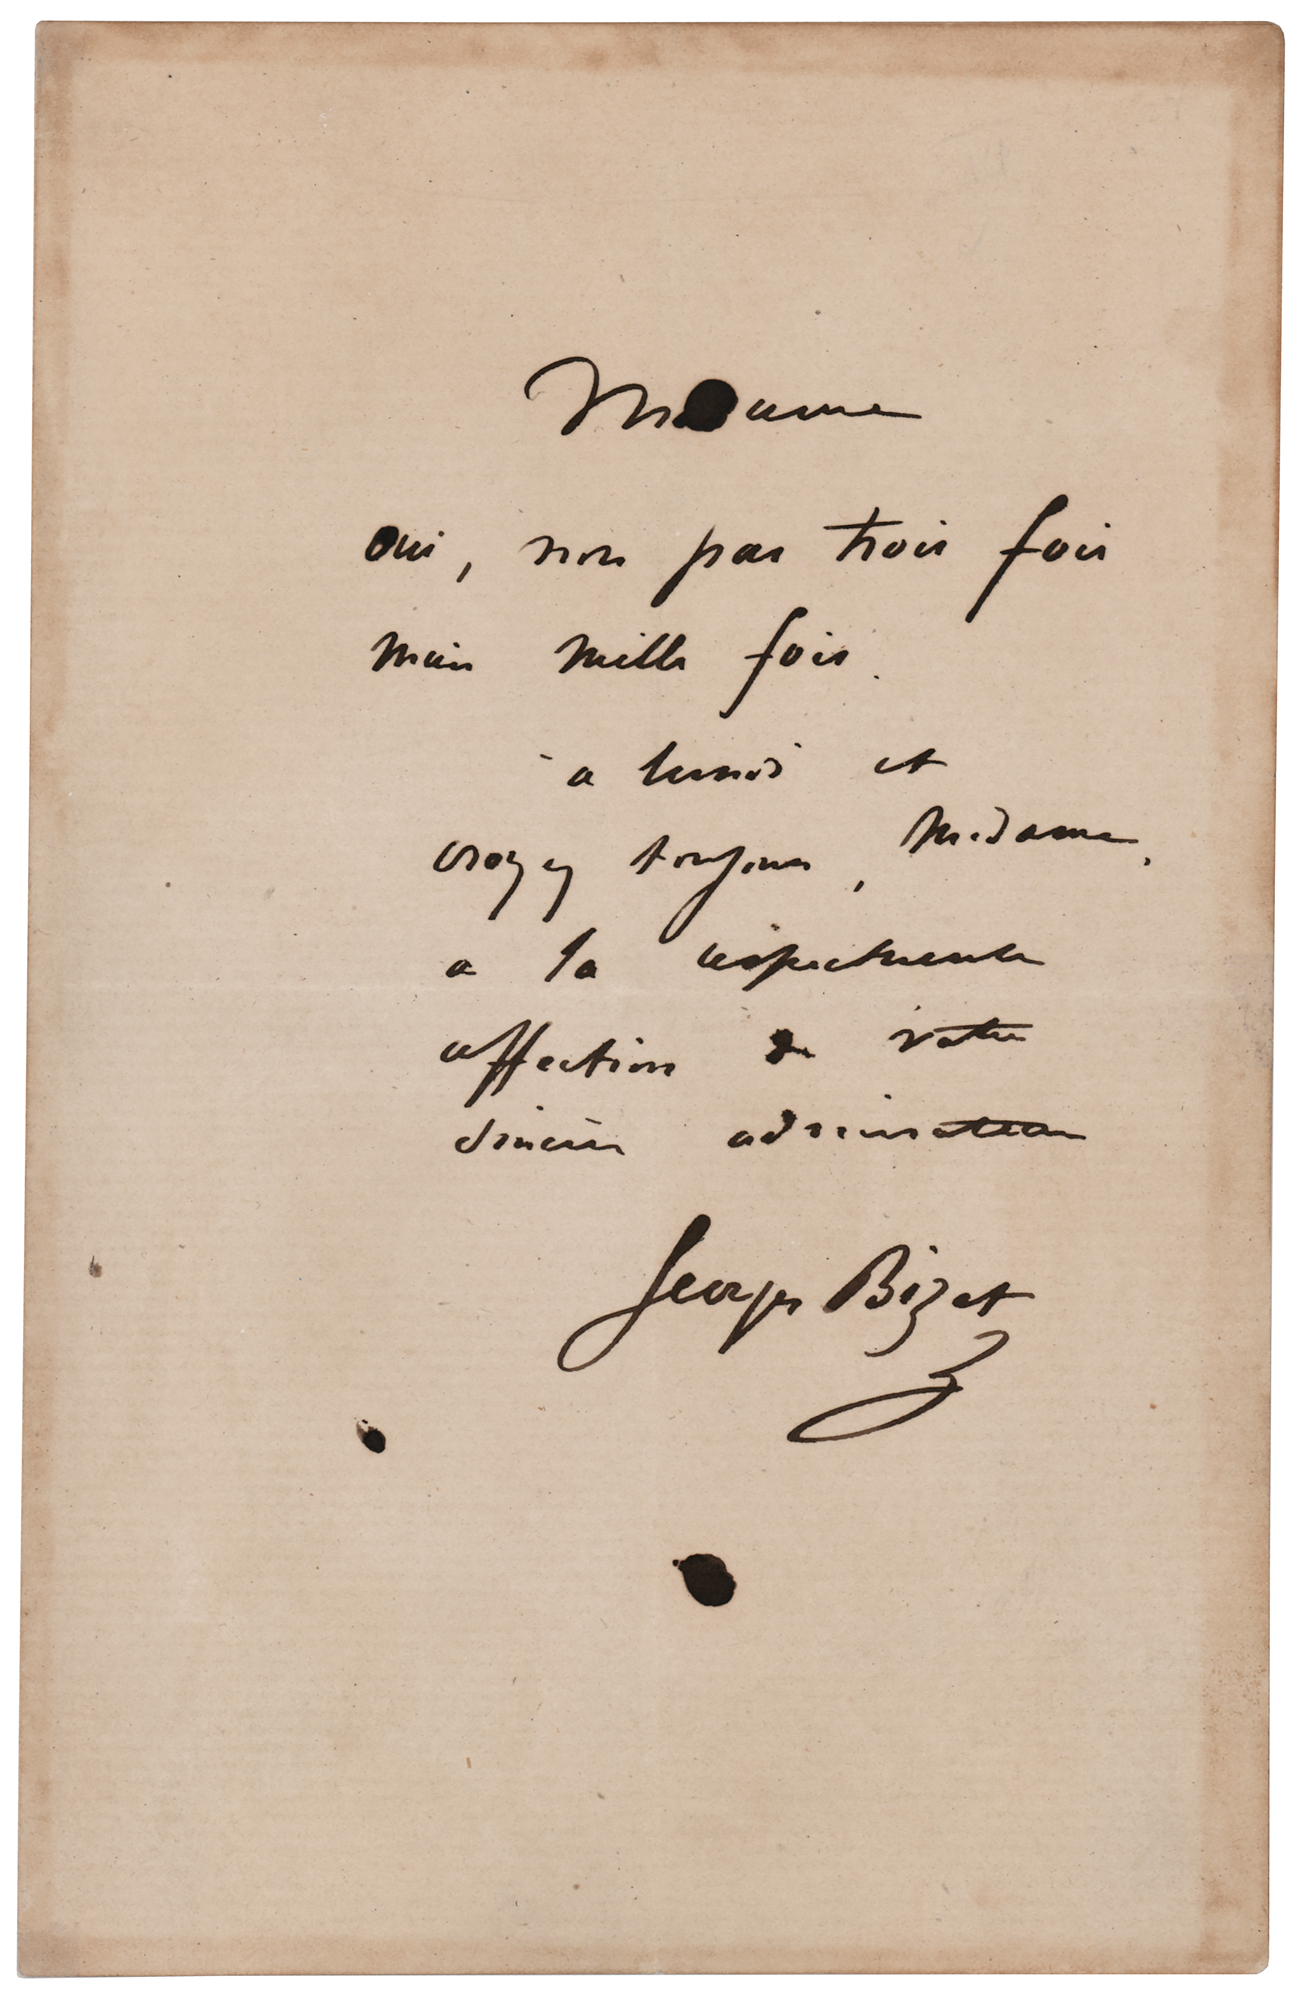 Madame
oui, non pas trois fois
mais mille fois.
à lundi et
croyez toujours, Madame,
a la respectueuse
affection de votre
sincère admirateur
Georges Bizet